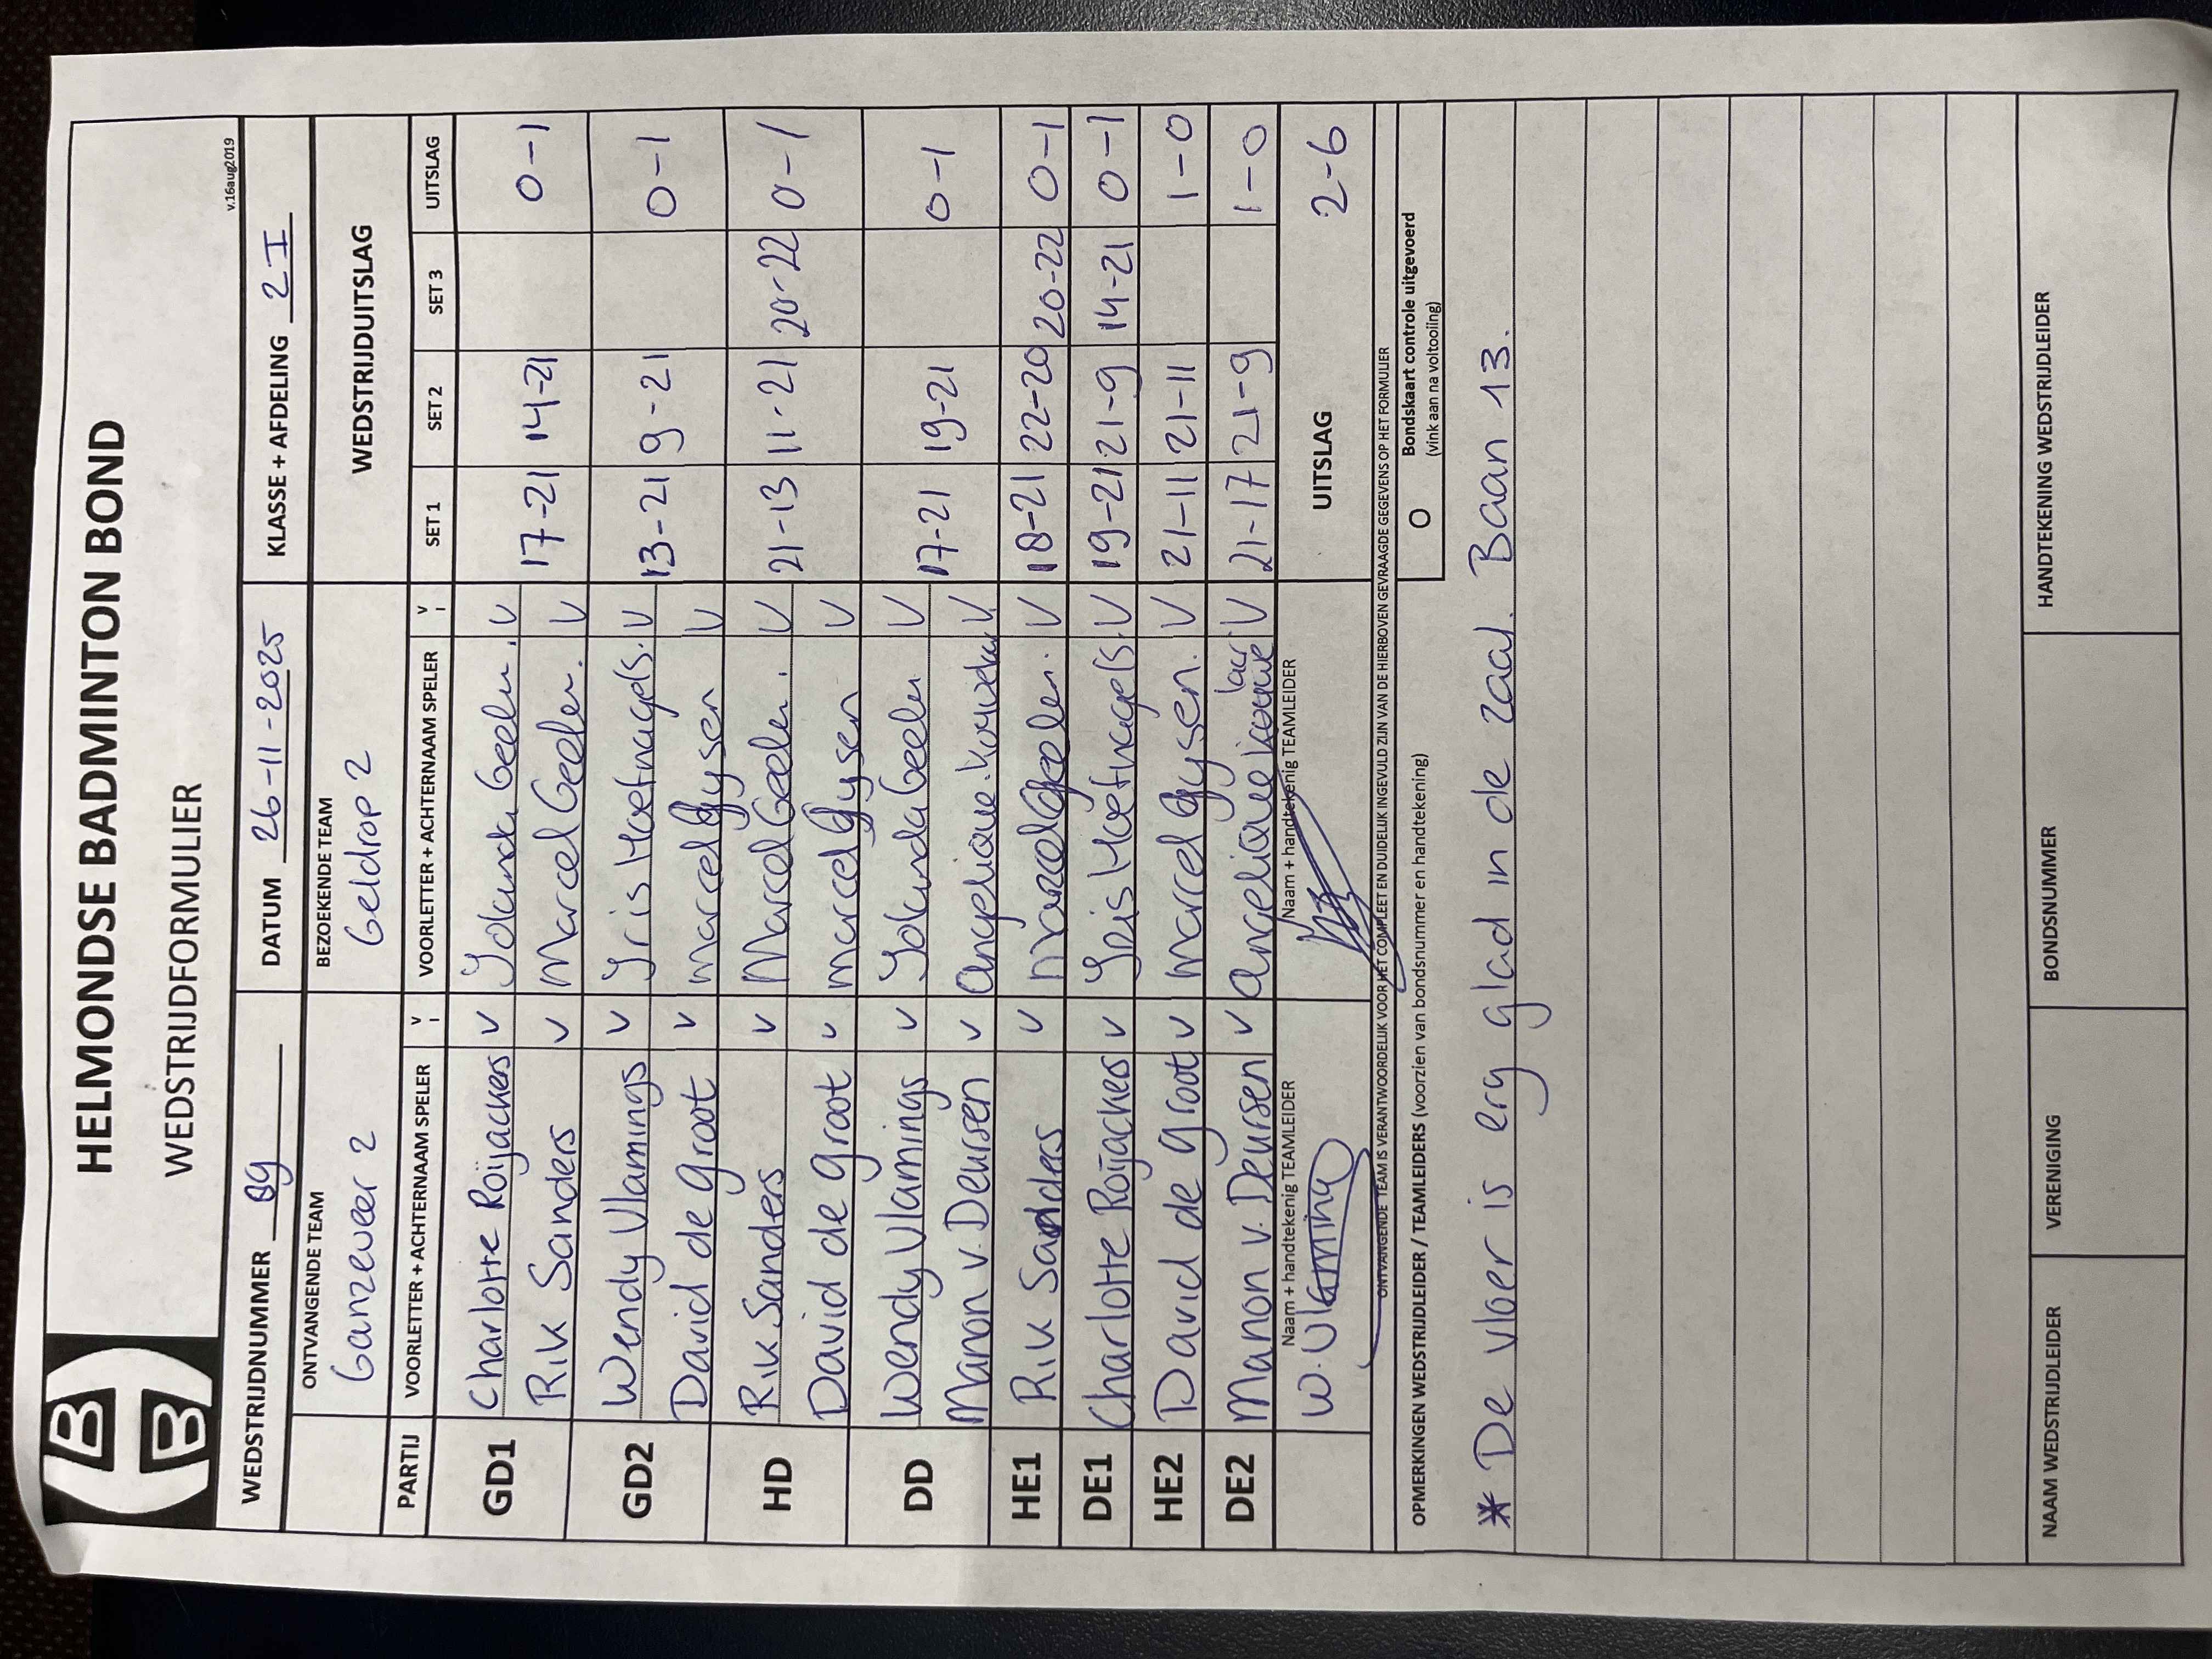 HELMONDSE BADMINTON BOND
WEDSTRIJDFORMULIER
v.16aug2019
WEDSTRIJDNUMMER 89 DATUM 26-11-2025 KLASSE + AFDELING 2 I
ONTVANGENDE TEAM BEZOEKENDE TEAM WEDSTRIJDUITSLAG
Ganzeveer 2 Geldrop 2
PARTIJ VOORLETTER + ACHTERNAAM SPELER V I VOORLETTER + ACHTERNAAM SPELER V I SET 1 SET 2 SET 3 UITSLAG
GD1 Charlotte Roijackers v Jolanda Geelen. V
Rik Sanders v Marcel Geelen. V 17-21 14-21 0-1
GD2 Wendy Vlamings v Iris Hoefnagels. V
David de Groot v Marcel Gysen V 13-21 9-21 0-1
HD Rik Sanders v Marcel Geelen. V 21-13 11-21 20-22 0-1
David de Groot v Marcel Gysen V
DD Wendy Vlamings v Jolanda Geelen V 17-21 19-21 0-1
Manon v. Deursen v Angelique V
HE1 Rik Sanders v Marcel Geelen. V 18-21 22-20 20-22 0-1
DE1 Charlotte Roijackers v Iris Hoefnagels. V 19-21 21-9 14-21 0-1
HE2 David de Groot v Marcel Gysen. V 21-11 21-11 1-0
DE2 Manon v. Deursen v Angelique V 21-17 21-9 1-0
Naam + handtekenig TEAMLEIDER Naam + handtekenig TEAMLEIDER UITSLAG 2-6
W. Vlaming
ONTVANGENDE TEAM IS VERANTWOORDELIJK VOOR HET COMPLEET EN DUIDELIJK INGEVULD ZIJN VAN DE HIERBOVEN GEVRAAGDE GEGEVENS OP HET FORMULIER
OPMERKINGEN WEDSTRIJDLEIDER / TEAMLEIDERS (voorzien van bondsnummer en handtekening) O Bondskaart controle uitgevoerd
(vink aan na voltooiing)
* De vloer is erg glad in de zaal. Baan 13.
NAAM WEDSTRIJDLEIDER VERENIGING BONDSNUMMER HANDTEKENING WEDSTRIJDLEIDER